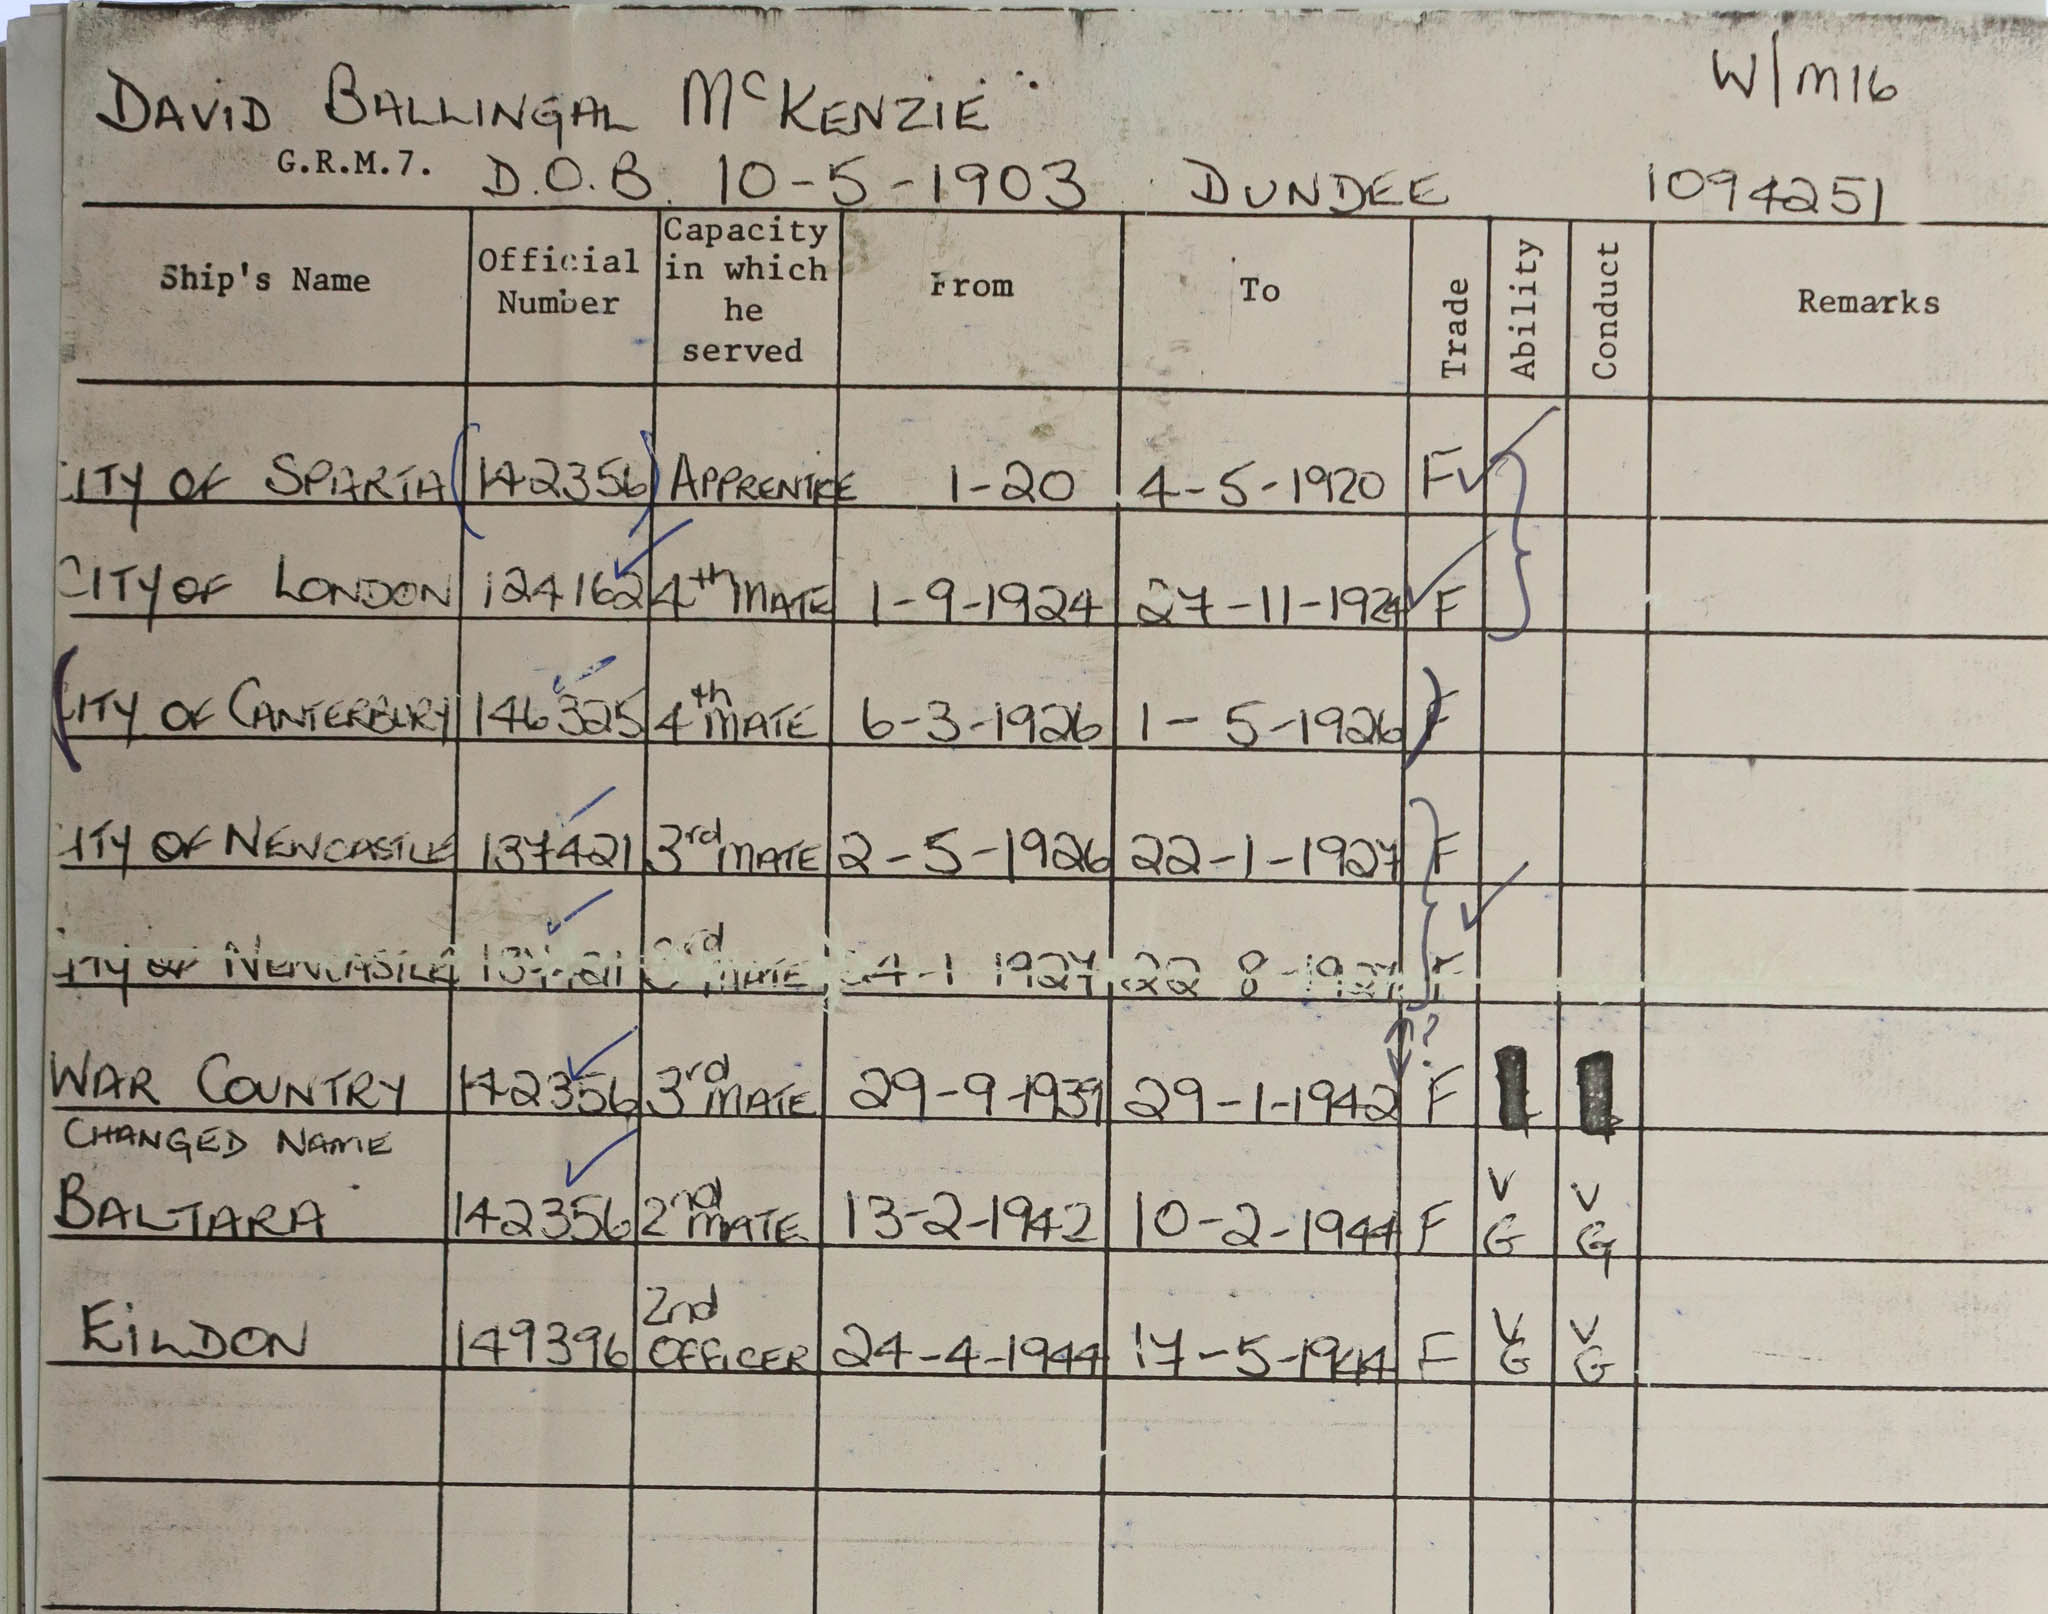 W/M16
DAVID BALLINGAL McKENZIE
G.R.M.7. D.O.B. 10-5-1903 DUNDEE 1094251
Ship's Name Official Number Capacity in which he served From To Trade Ability Conduct Remarks
ITY OF SPARTA (142356) APPRENTICE 1-20 4-5-1920 F
CITY OF LONDON 124162 4th MATE 1-9-1924 27-11-1924 F
(ITY OF CANTERBURY 146325 4th MATE 6-3-1926 1-5-1926) F
ITY OF NEWCASTLE 137421 3rd MATE 2-5-1926 22-1-1927 F
ITY OF NEWCASTLE 137421 3rd MATE 24-1-1927 22-8-1927 F
?
WAR COUNTRY 142356 3rd MATE 29-9-1939 29-1-1942 F
CHANGED NAME
BALTARA 142356 2nd MATE 13-2-1942 10-2-1944 F VG VG
EILDON 149396 2nd OFFICER 24-4-1944 17-5-1944 F VG VG